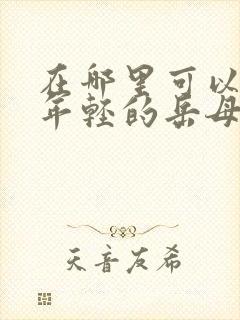 在哪里可以
年轻的岳母
天音友希